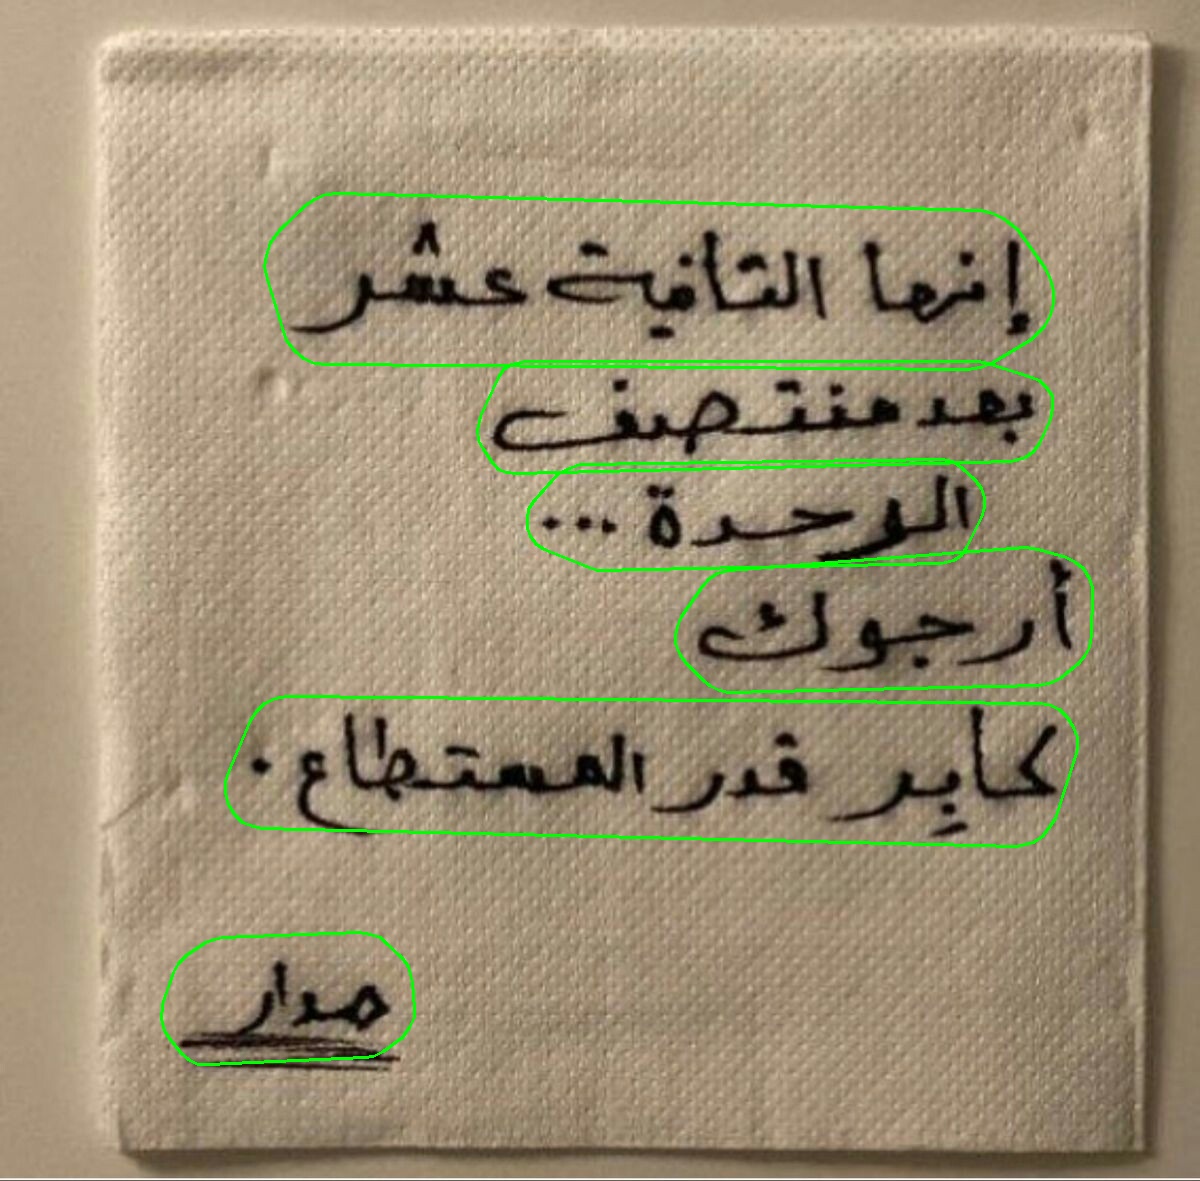 إنها الثانية عشر
بعد منتصف
الوحدة ...
أرجوك
كابر قدر المستطاع .
مدار